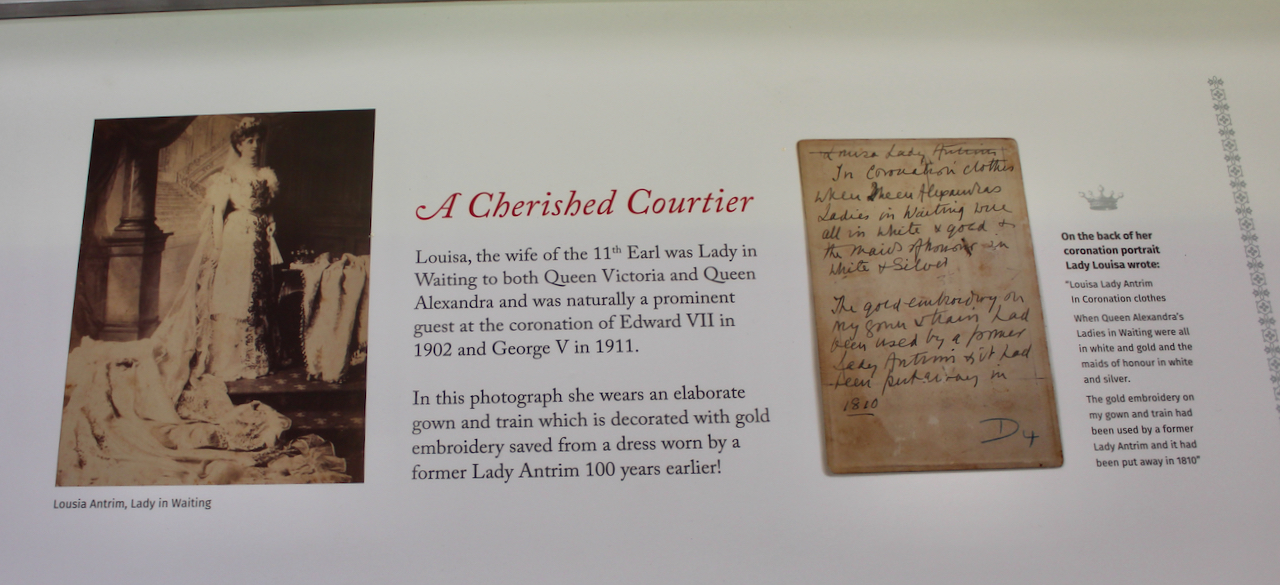 A Cherished Courtier
Louisa, the wife of the 11th Earl was Lady in
Waiting to both Queen Victoria and Queen
Alexandra and was naturally a prominent
guest at the coronation of Edward VII in
1902 and George V in 1911.
In this photograph she wears an elaborate
gown and train which is decorated with gold
embroidery saved from a dress worn by a
former Lady Antrim 100 years earlier!
Lousia Antrim, Lady in Waiting
Louisa Lady Antrim
In Coronation clothes
When Queen Alexandras
Ladies in Waiting were
all in white & gold &
the maids of honour in
white & silver
The gold embroidery on
my gown & train had
been used by a former
Lady Antrim & it had
been put away in
1810
D4
On the back of her
coronation portrait
Lady Louisa wrote:
"Louisa Lady Antrim
In Coronation clothes
When Queen Alexandra's
Ladies in Waiting were all
in white and gold and the
maids of honour in white
and silver.
The gold embroidery on
my gown and train had
been used by a former
Lady Antrim and it had
been put away in 1810"